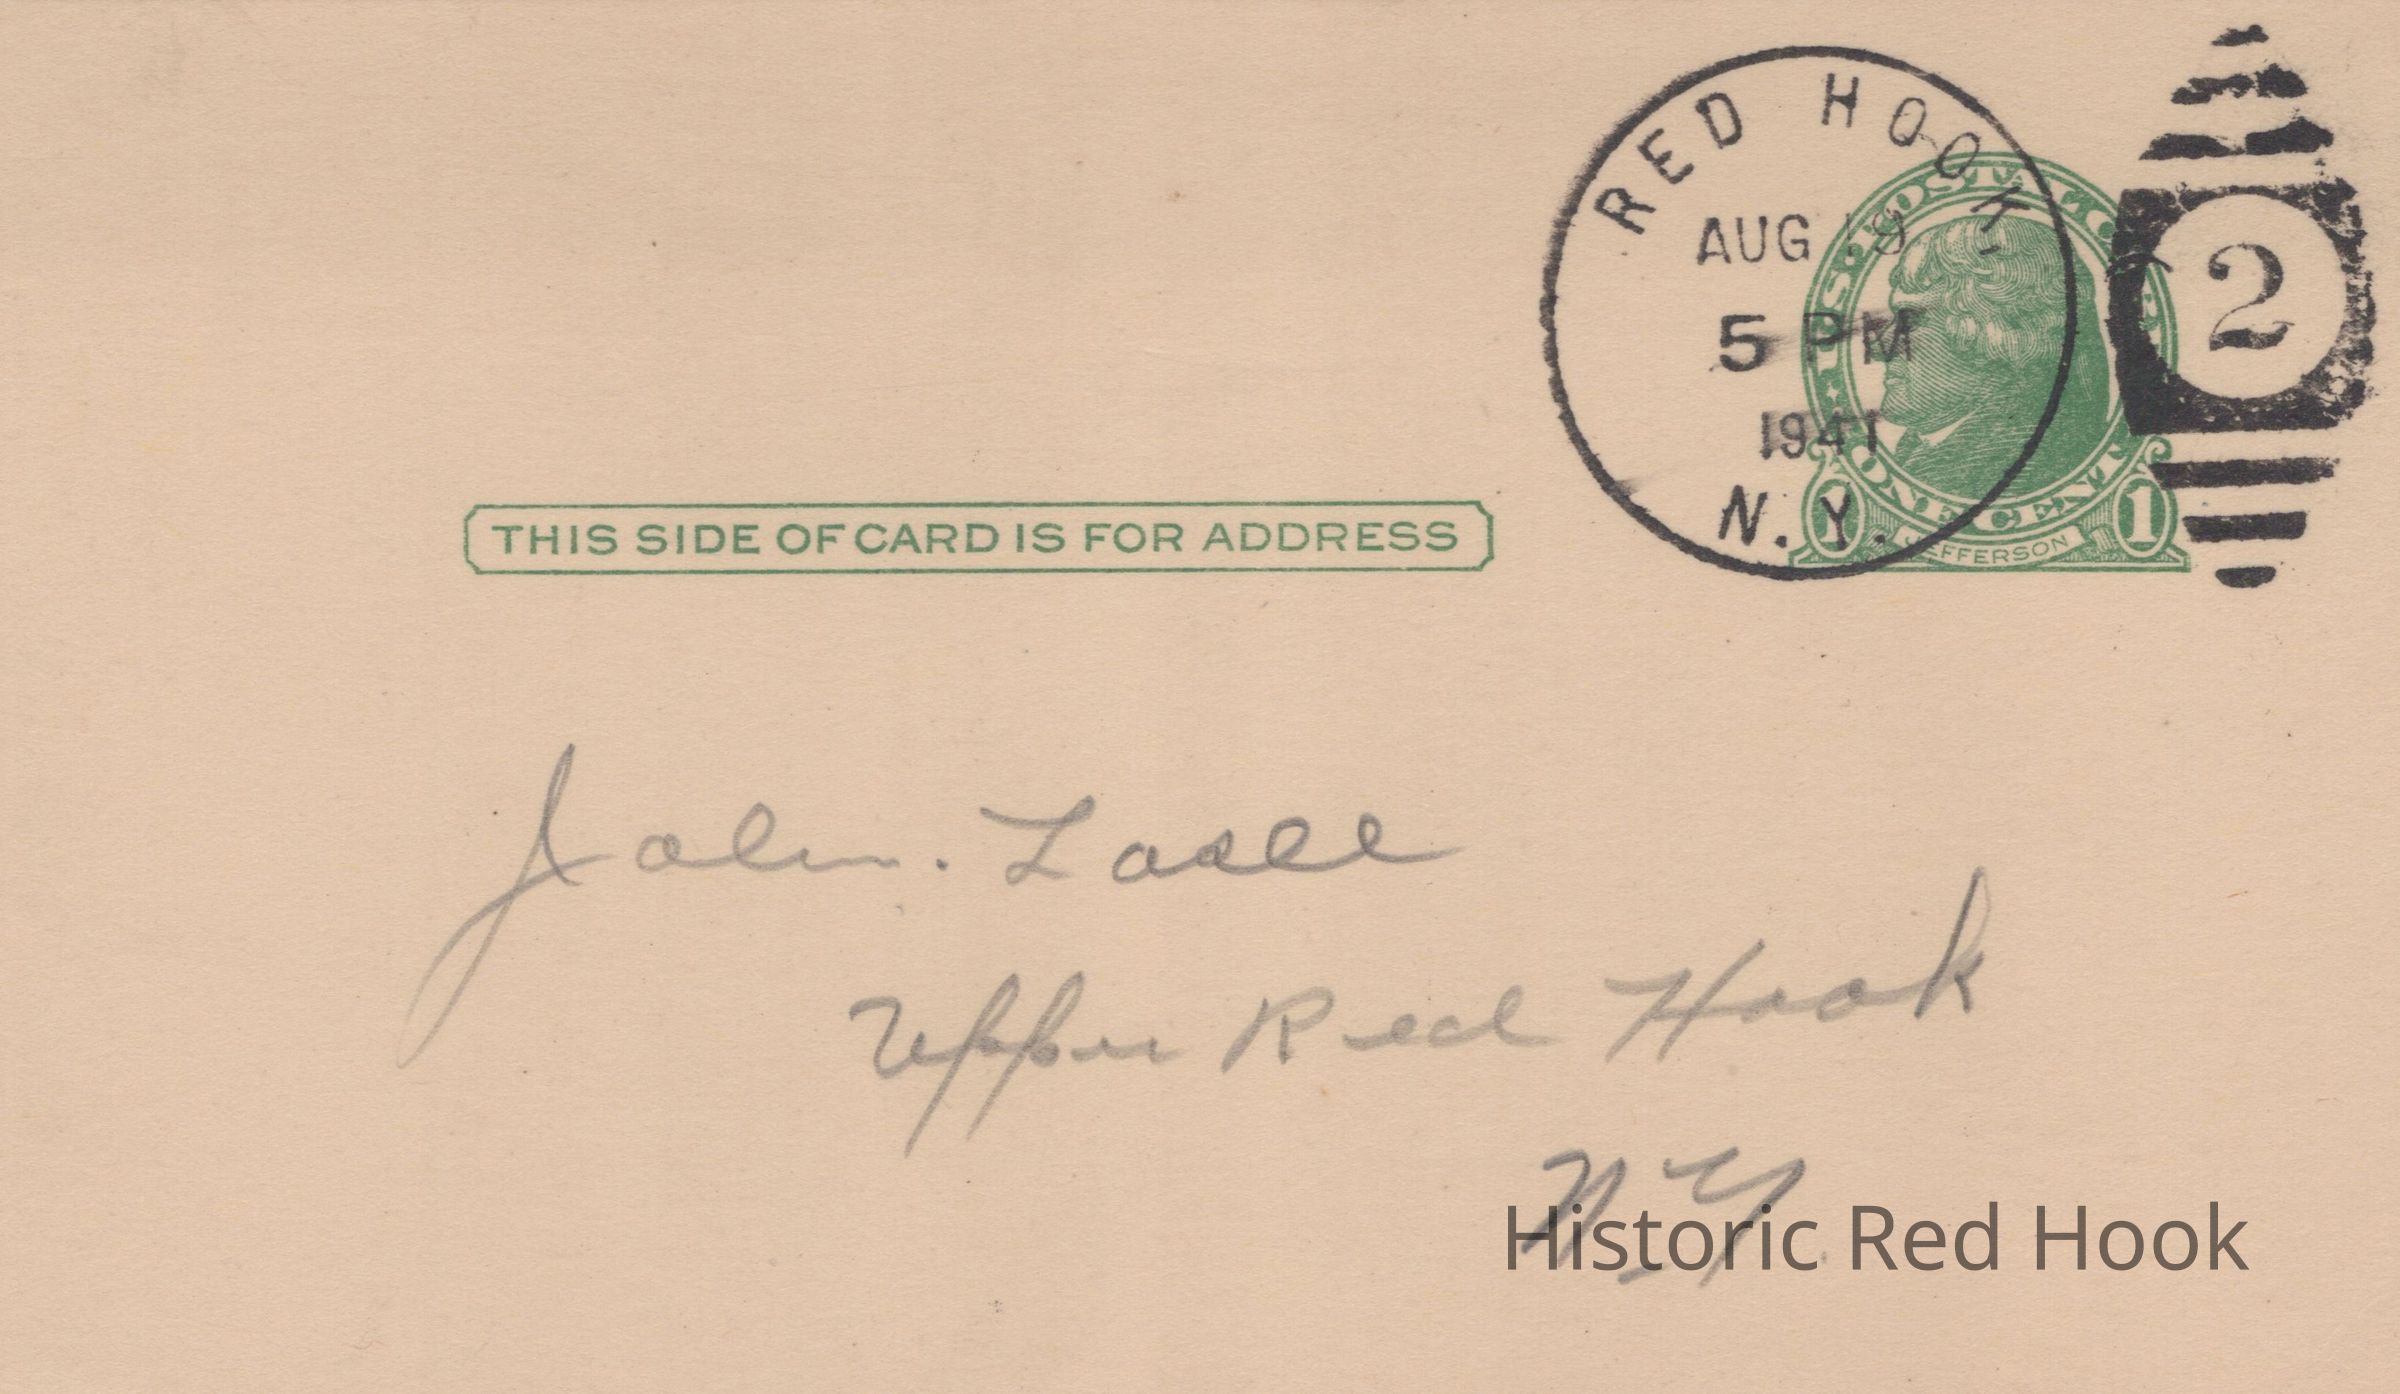 RED HOOK
AUG 19
5 PM
1941
N.Y.
2
U.S. POSTAL CARD
ONE CENT
1 1
JEFFERSON
THIS SIDE OF CARD IS FOR ADDRESS
John. Lasee
Upper Red Hook
N.Y.
Historic Red Hook